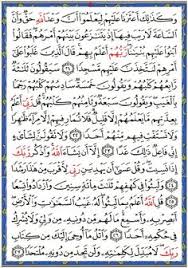 وَكَذَٰلِكَ أَعْثَرْنَا عَلَيْهِمْ لِيَعْلَمُوٓا۟ أَنَّ وَعْدَ ٱللَّهِ حَقٌّ وَأَنَّ
ٱلسَّاعَةَ لَا رَيْبَ فِيهَآ إِذْ يَتَنَٰزَعُونَ بَيْنَهُمْ أَمْرَهُمْ فَقَالُوا۟
ٱبْنُوا۟ عَلَيْهِم بُنْيَٰنًا رَّبُّهُمْ أَعْلَمُ بِهِمْ قَالَ ٱلَّذِينَ غَلَبُوا۟ عَلَىٰٓ
أَمْرِهِمْ لَنَتَّخِذَنَّ عَلَيْهِم مَّسْجِدًا ٢١ سَيَقُولُونَ ثَلَٰثَةٌ
رَّابِعُهُمْ كَلْبُهُمْ وَيَقُولُونَ خَمْسَةٌ سَادِسُهُمْ كَلْبُهُمْ رَجْمًۢا
بِٱلْغَيْبِ وَيَقُولُونَ سَبْعَةٌ وَثَامِنُهُمْ كَلْبُهُمْ قُل رَّبِّىٓ أَعْلَمُ
بِعِدَّتِهِم مَّا يَعْلَمُهُمْ إِلَّا قَلِيلٌ فَلَا تُمَارِ فِيهِمْ إِلَّا مِرَآءً ظَٰهِرًا
وَلَا تَسْتَفْتِ فِيهِم مِّنْهُمْ أَحَدًا ٢٢ وَلَا تَقُولَنَّ لِشَا۟ىْءٍ إِنِّى
فَاعِلٌ ذَٰلِكَ غَدًا ٢٣ إِلَّآ أَن يَشَآءَ ٱللَّهُ وَٱذْكُر رَّبَّكَ
إِذَا نَسِيتَ وَقُلْ عَسَىٰٓ أَن يَهْدِيَنِ رَبِّى لِأَقْرَبَ مِنْ هَٰذَا رَشَدًا
٢٤ وَلَبِثُوا۟ فِى كَهْفِهِمْ ثَلَٰثَ مِا۟ئَةٍ سِنِينَ وَٱزْدَادُوا۟ تِسْعًا
٢٥ قُلِ ٱللَّهُ أَعْلَمُ بِمَا لَبِثُوا۟ لَهُۥ غَيْبُ ٱلسَّمَٰوَٰتِ وَٱلْأَرْضِ أَبْصِرْ بِهِۦ
وَأَسْمِعْ مَا لَهُم مِّن دُونِهِۦ مِن وَلِىٍّ وَلَا يُشْرِكُ فِى حُكْمِهِۦٓ
أَحَدًا ٢٦ وَٱتْلُ مَآ أُوحِىَ إِلَيْكَ مِن كِتَابِ
رَبِّكَ لَا مُبَدِّلَ لِكَلِمَٰتِهِۦ وَلَن تَجِدَ مِن دُونِهِۦ مُلْتَحَدًا ٢٧